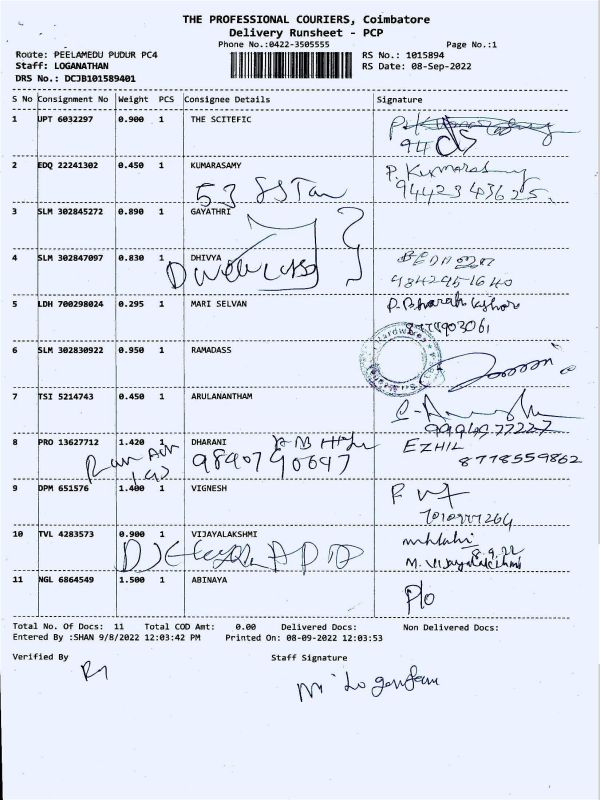 THE PROFESSIONAL COURIERS, Coimbatore
Delivery Runsheet - PCP
Phone No.:0422-3505555
Page No.:1
Route: PEELAMEDU PUDUR PC4
RS No.: 1015894
Staff: LOGANATHAN
RS Date: 08-Sep-2022
DRS No.: DCJB101589401
S No Consignment No Weight PCS Consignee Details Signature
1 UPT 6032297 0.900 1 THE SCITEFIC
2 EDQ 22241302 0.450 1 KUMARASAMY P. Kumarasamy
53 9442343625
3 SLM 302845272 0.890 1 GAYATHRI
4 SLM 302847097 0.830 1 DHIVYA
9842951640
5 LDH 700298024 0.295 1 MARI SELVAN
6 SLM 302830922 0.950 1 RAMADASS
7 TSI 5214743 0.450 1 ARULANANTHAM
9994977227
8 PRO 13627712 1.420 1 DHARANI EZHIL
9840790647 8778559862
9 DPM 651576 1.400 1 VIGNESH
10 TVL 4283573 0.900 1 VIJAYALAKSHMI
8.9.22
M. Vijayalakshmi
11 NGL 6864549 1.500 1 ABINAYA
P/o
Total No. Of Docs: 11 Total COD Amt: 0.00 Delivered Docs: Non Delivered Docs:
Entered By :SHAN 9/8/2022 12:03:42 PM Printed On: 08-09-2022 12:03:53
Verified By Staff Signature